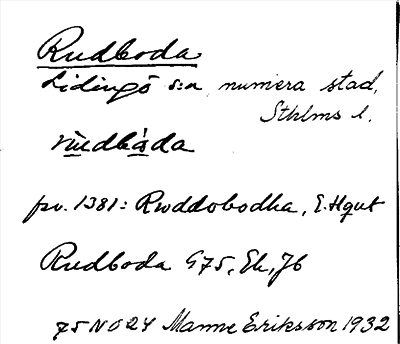 Rudboda
Lidingö s:n numera stad,
Sthlms l.
rùdbòda
pv. 1381: Rwddobodha, E. Hqut
Rudboda G75, Ek, Jb
75 NO 24 Manne Eriksson 1932